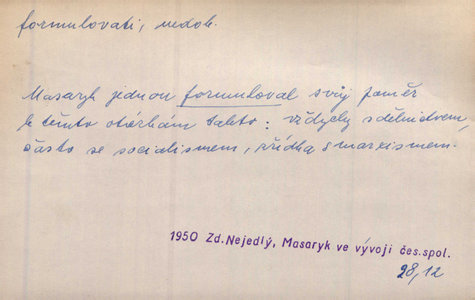 formulovati, nedok.
Masaryk jednou formuloval svůj poměr
k těmto otázkám takto: vždycky s dělnictvem,
často se socialismem, zřídka s marxismem.
1950 Zd.Nejedlý, Masaryk ve vývoji čes.spol.
28,12